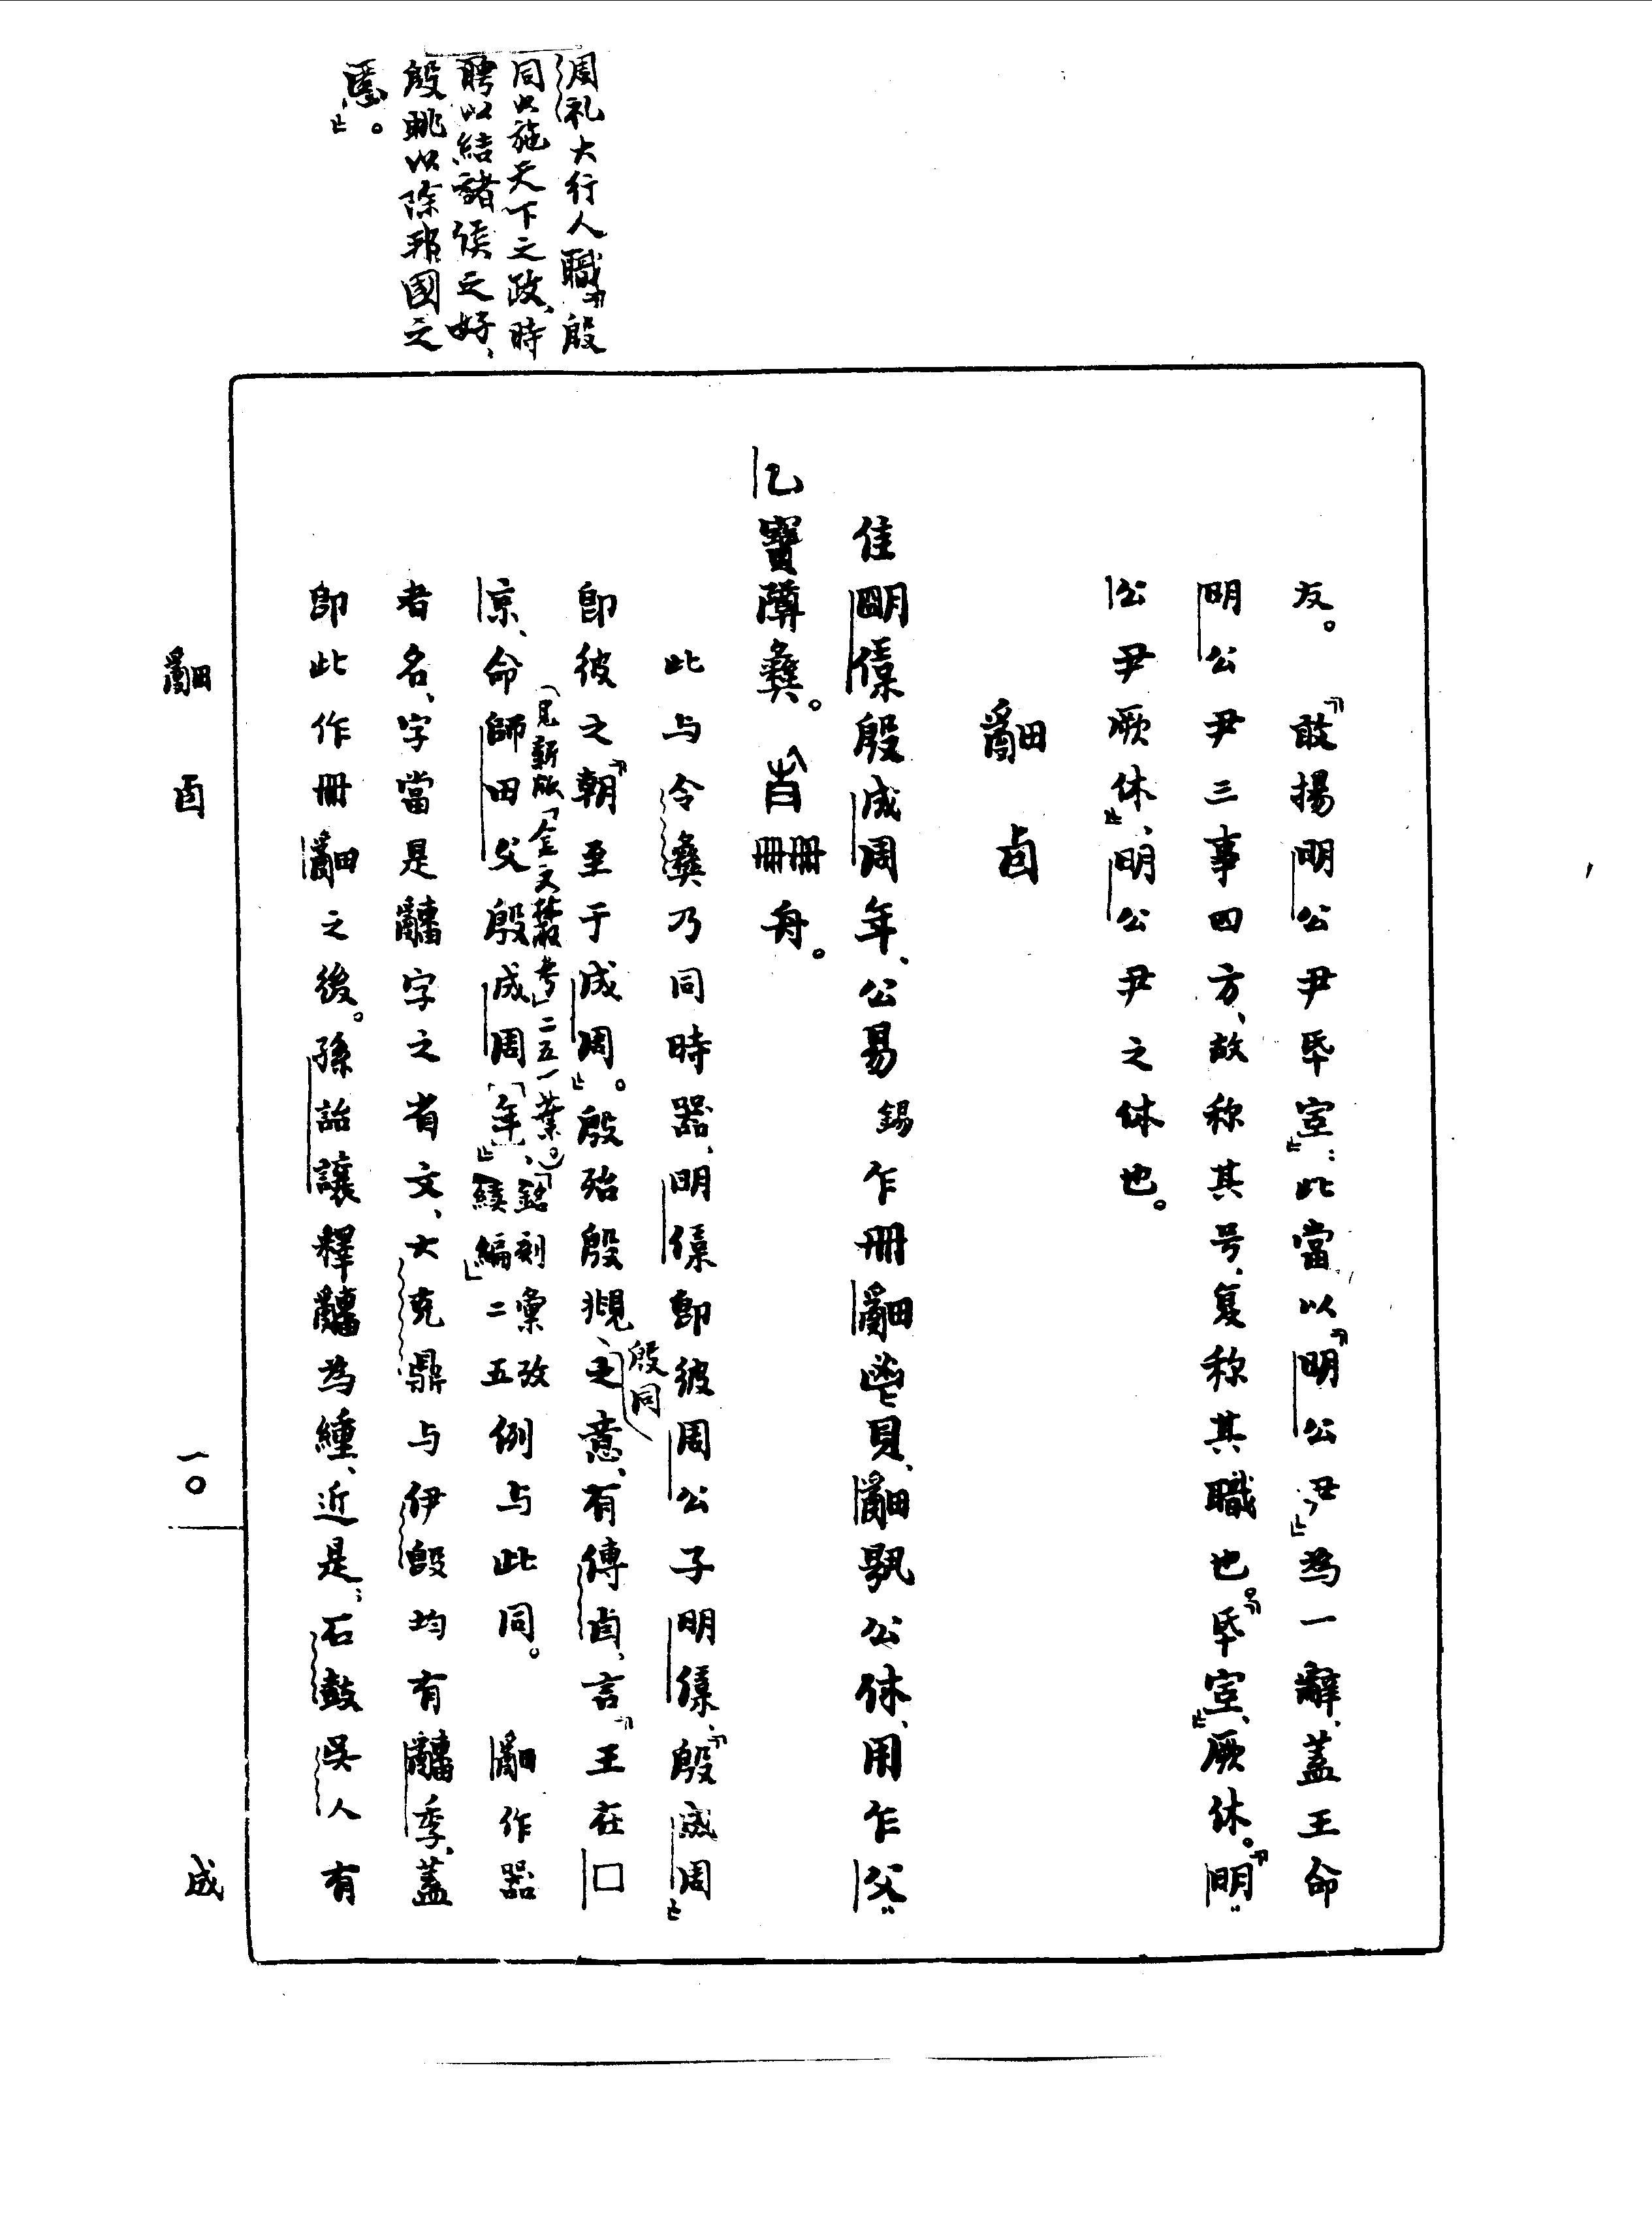 周礼大行人職「殷
同以施天下之政、時
聘以結諸侯之好、
殷覜以除邦國之
慝。」
友。「敢揚明公尹氒室」：此當以「明公尹」為一辭，蓋王命
明公尹三事四方、故称其号，复称其職也。「氒室」、厥休。「明〃
公〃尹厥休」、明公尹之休也。
卣
隹明𠍙殷成周年、公易錫乍冊鬯貝、揚公休、用乍父〃
乙寶䵼彝。冊冊舟。
此与令彝乃同時器，明𠍙即彼周公子明𠍙、「殷成周」
即彼之「朝至于成周」。殷殆殷同殷覜之意、有傳卣、言「王在囗
京、命師田父殷成周年」、（見新版「金文叢考」二五一葉。）「銘刻彙攷續編」二五例与此同。作器
者名、字當是字之省文、大克鼎与伊𣪘均有季、蓋
即此作冊之後。孫詒讓釋為緟、近是；石鼓吳人有
卣
一〇
成